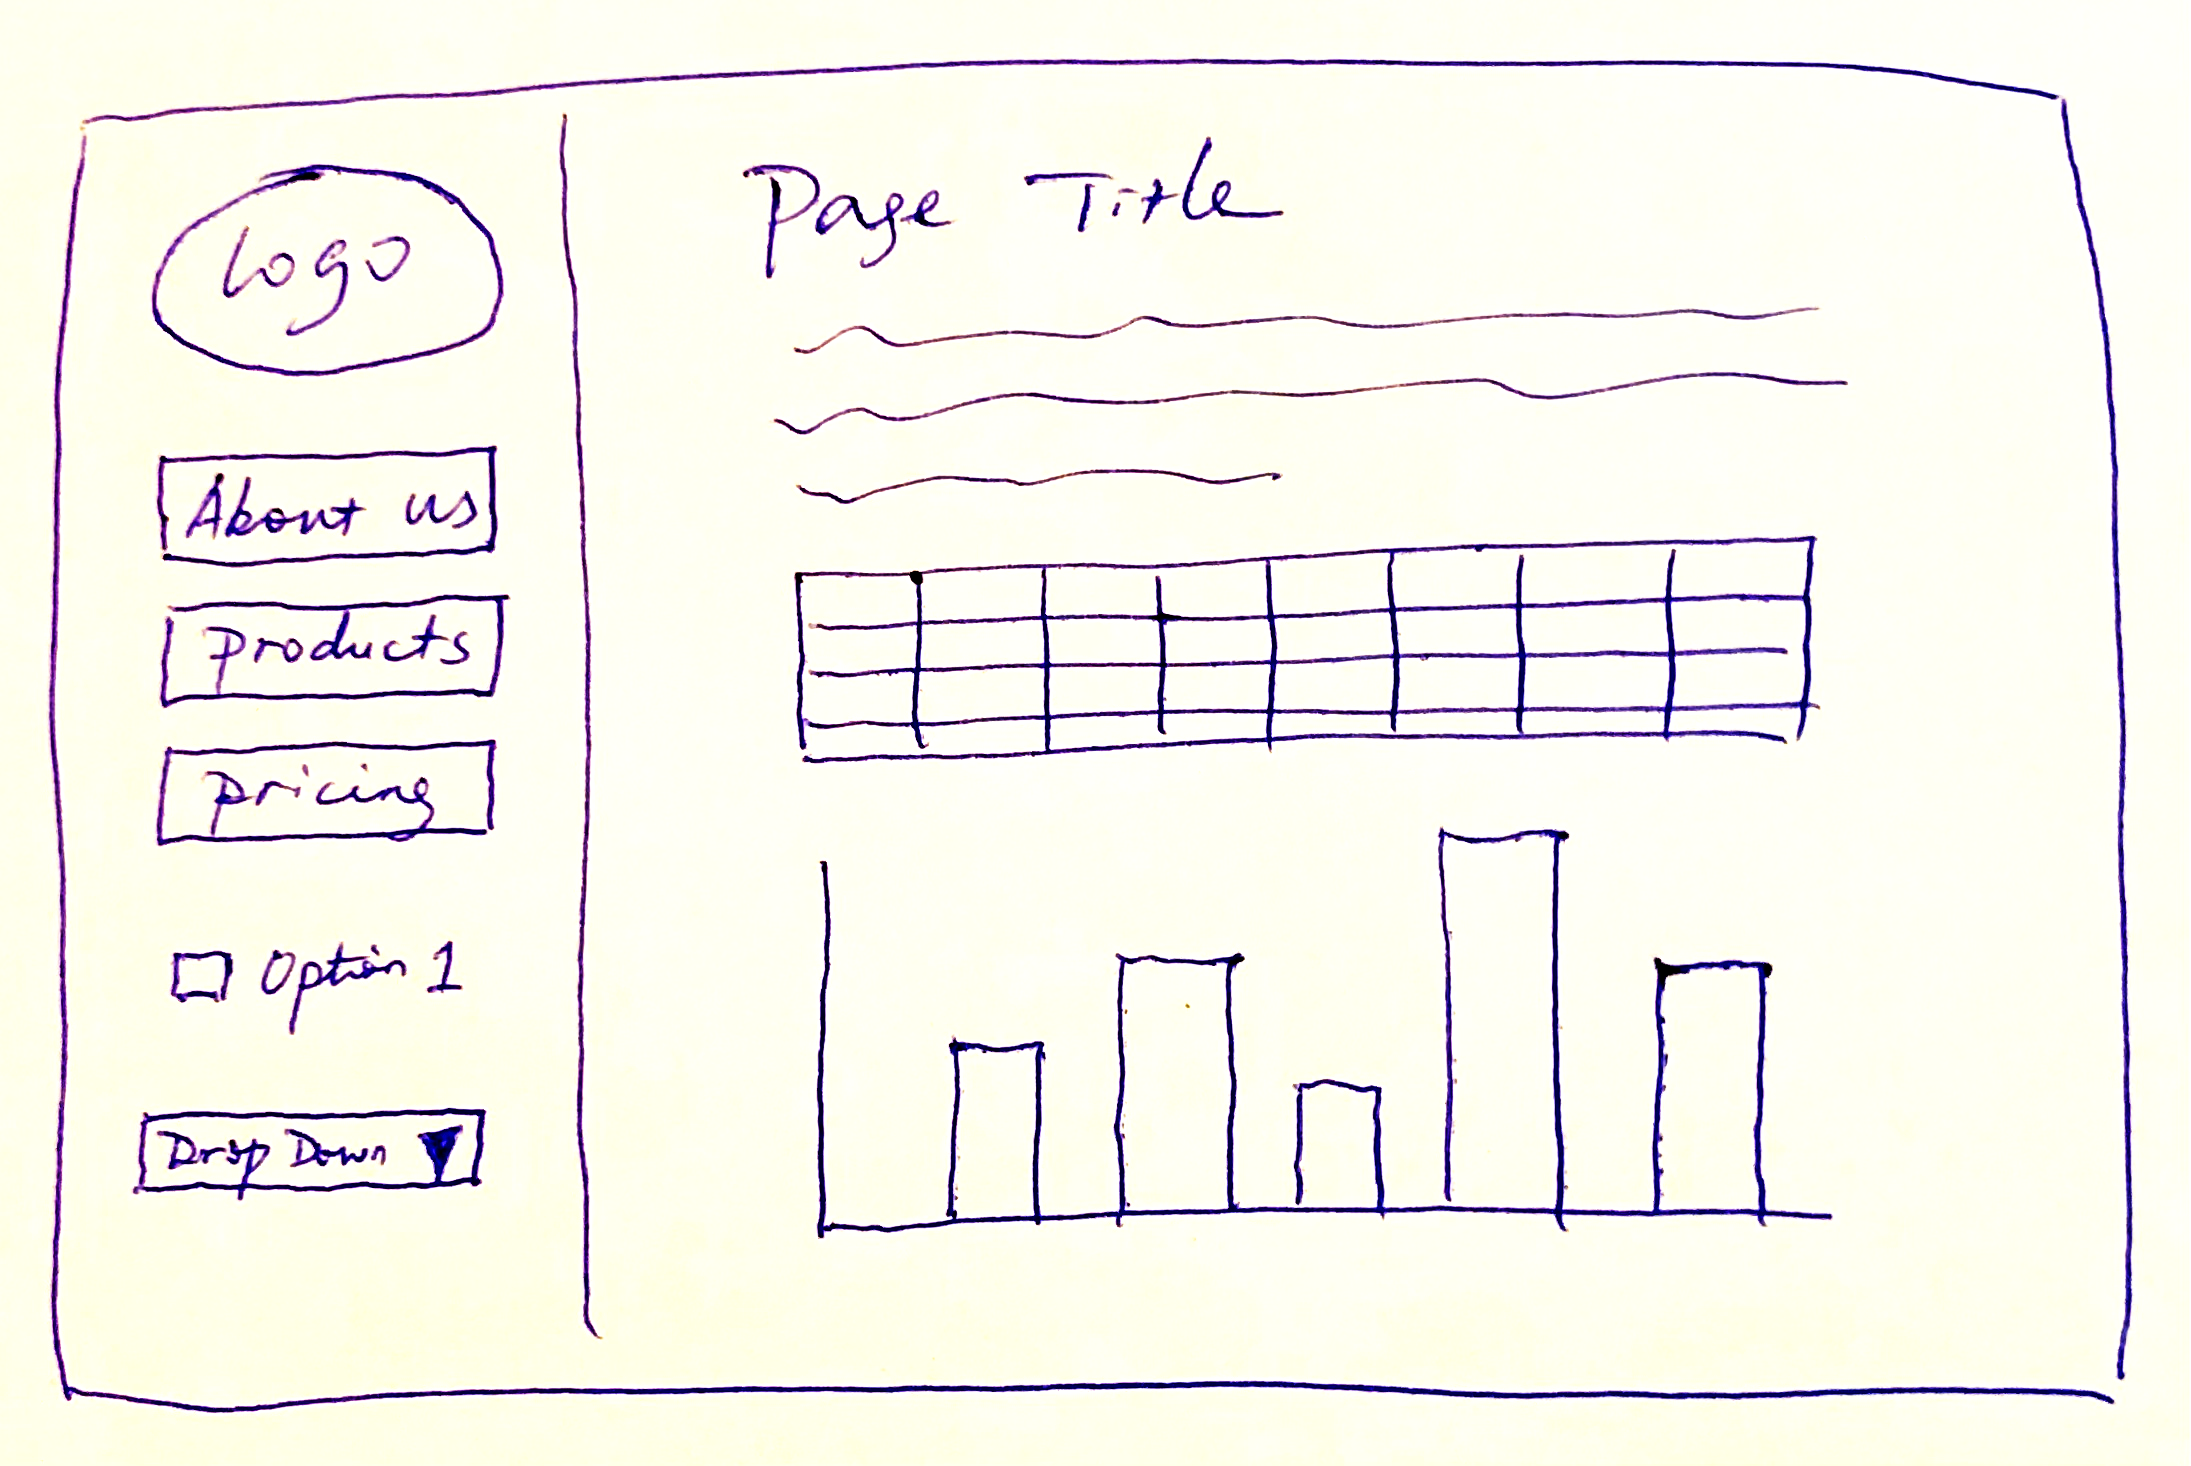 Logo
About us
Products
pricing
Option 1
Drop Down
Page Title